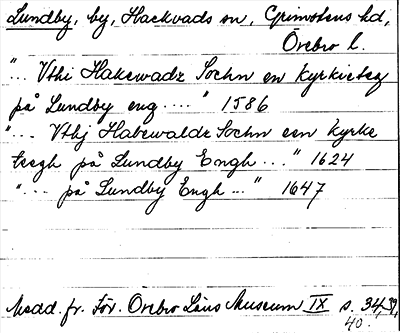 Lundby, by, Hackvads sn, Grimstens hd,
Örebro l.
"... Vthi Hakewadz Sochn en kyrkieteg
på Lundby eng ...." 1586
"... Vthj Habewaldz Sochn een kyrke
teegh på Lundby Engh ..." 1624
"... på Lundby Engh ..." 1647
Medd. fr. För. Örebro Läns Museum IX s. 34, 39,
40.